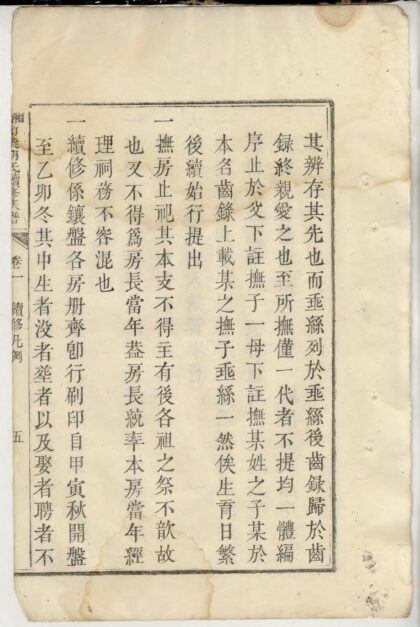 其辨存其先也而垂絲列於垂絲後齒錄歸於齒
錄終親愛之也至所撫僅一代者不提均一體編
序止於父下註撫子一母下註撫某姓之子某於
本名齒錄上載某之撫子垂絲一然俟生育日繁
後續始行提出
一撫房止祀其本支不得主有後各祖之祭不歆故
也又不得爲房長當年葢房長統率本房當年經
理祠務不容混也
一續修係鑲盤各房册齊卽行刷印自甲寅秋開盤
至乙卯冬其中生者沒者塟者以及娶者聘者不
氏續修族譜
卷一
續修凡例
五